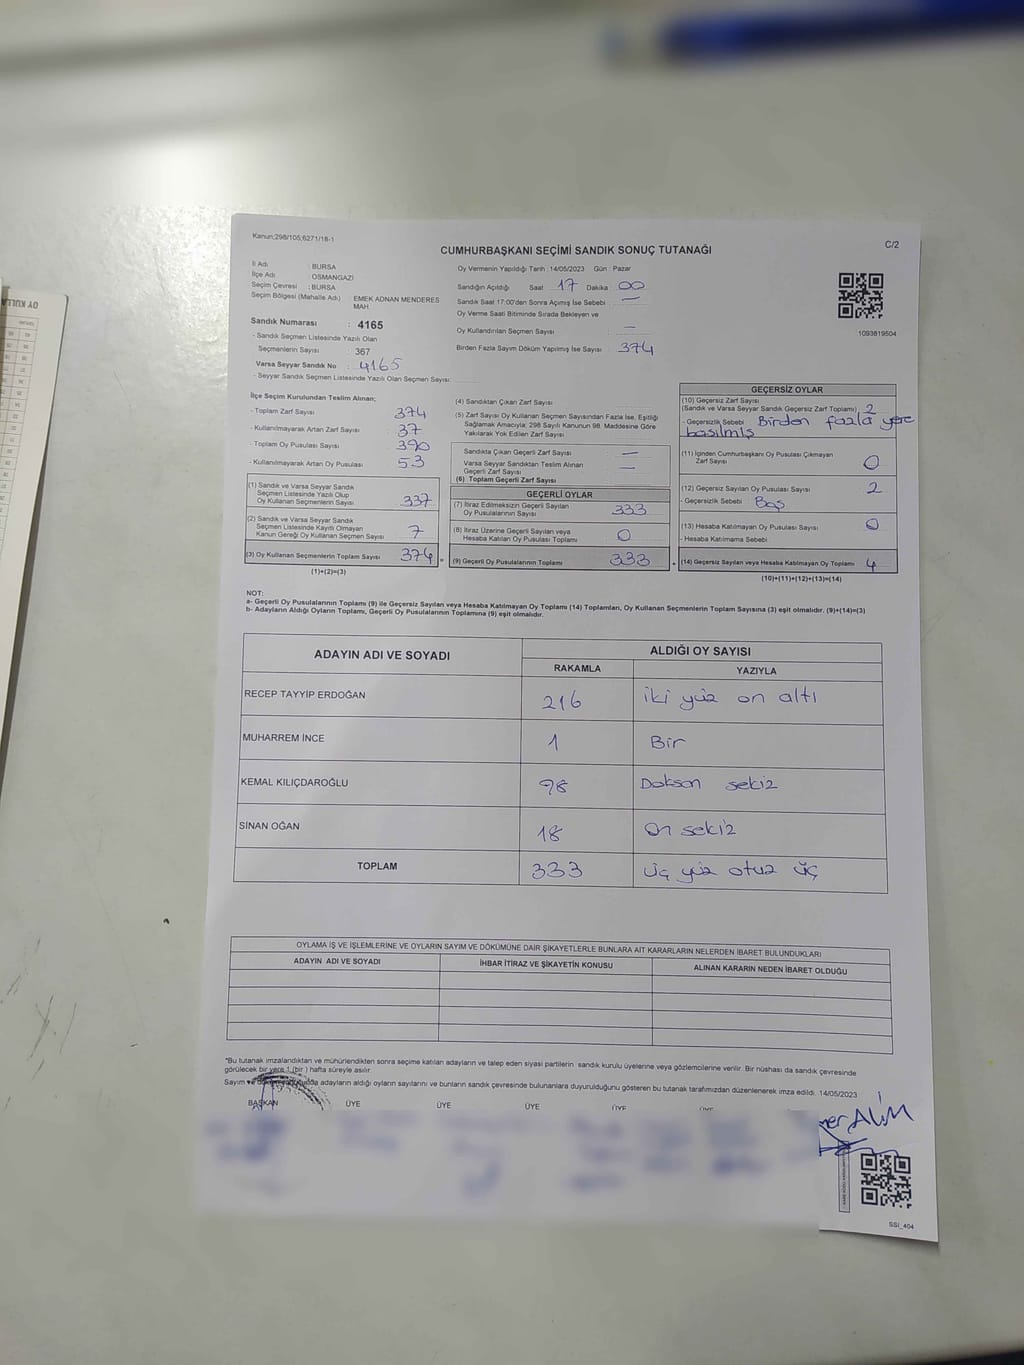 Kanun;298/105;6271/18-1
CUMHURBAŞKANI SEÇİMİ SANDIK SONUÇ TUTANAĞI
C/2
İl Adı : BURSA
İlçe Adı : OSMANGAZİ
Seçim Çevresi : BURSA
Seçim Bölgesi (Mahalle Adı) EMEK ADNAN MENDERES MAH
Sandık Numarası : 4165
- Sandık Seçmen Listesinde Yazılı Olan
Seçmenlerin Sayısı 367
Varsa Seyyar Sandık No : 4165
- Seyyar Sandık Seçmen Listesinde Yazılı Olan Seçmen Sayısı:
Oy Vermenin Yapıldığı Tarih :14/05/2023 Gün : Pazar
Sandığın Açıldığı Saat 17 Dakika 00
Sandık Saat 17:00'den Sonra Açımış İse Sebebi : —
Oy Verme Saati Bitiminde Sırada Bekleyen ve
Oy Kullandırılan Seçmen Sayısı : —
Birden Fazla Sayım Döküm Yapılmış İse Sayısı : 374
1093819504
İlçe Seçim Kurulundan Teslim Alınan;
- Toplam Zarf Sayısı : 374
- Kullanılmayarak Artan Zarf Sayısı : 37
- Toplam Oy Pusulası Sayısı : 390
- Kullanılmayarak Artan Oy Pusulası : 53
(1) Sandık ve Varsa Seyyar Sandık
Seçmen Listesinde Yazılı Olup
Oy Kullanan Seçmenlerin Sayısı 337
(2) Sandık ve Varsa Seyyar Sandık
Seçmen Listesinde Kayıtlı Olmayan
Kanun Gereği Oy Kullanan Seçmen Sayısı 7
(3) Oy Kullanan Seçmenlerin Toplam Sayısı 374 =
(1)+(2)=(3)
(4) Sandıktan Çıkan Zarf Sayısı
(5) Zarf Sayısı Oy Kullanan Seçmen Sayısından Fazla İse, Eşitliği
Sağlamak Amacıyla; 298 Sayılı Kanunun 98. Maddesine Göre
Yakılarak Yok Edilen Zarf Sayısı
Sandıkta Çıkan Geçerli Zarf Sayısı —
Varsa Seyyar Sandıktan Teslim Alınan
Geçerli Zarf Sayısı —
(6) Toplam Geçerli Zarf Sayısı
GEÇERLİ OYLAR
(7) İtiraz Edilmeksizin Geçerli Sayılan
Oy Pusulalarının Sayısı 333
(8) İtiraz Üzerine Geçerli Sayılan veya
Hesaba Katılan Oy Pusulası Toplamı 0
(9) Geçerli Oy Pusulalarının Toplamı 333
GEÇERSİZ OYLAR
(10) Geçersiz Zarf Sayısı
(Sandık ve Varsa Seyyar Sandık Geçersiz Zarf Toplamı) 2
- Geçersizlik Sebebi Birden fazla yere
basılmış
(11) İçinden Cumhurbaşkanı Oy Pusulası Çıkmayan
Zarf Sayısı 0
(12) Geçersiz Sayılan Oy Pusulası Sayısı 2
- Geçersizlik Sebebi Boş
(13) Hesaba Katılmayan Oy Pusulası Sayısı 0
- Hesaba Katılmama Sebebi
(14) Geçersiz Sayılan veya Hesaba Katılmayan Oy Toplamı 4
(10)+(11)+(12)+(13)=(14)
NOT:
a- Geçerli Oy Pusulalarının Toplamı (9) ile Geçersiz Sayılan veya Hesaba Katılmayan Oy Toplamı (14) Toplamları, Oy Kullanan Seçmenlerin Toplam Sayısına (3) eşit olmalıdır. (9)+(14)=(3)
b- Adayların Aldığı Oyların Toplamı, Geçerli Oy Pusulalarının Toplamına (9) eşit olmalıdır.
ADAYIN ADI VE SOYADI
ALDIĞI OY SAYISI
RAKAMLA YAZIYLA
RECEP TAYYİP ERDOĞAN 216 iki yüz on altı
MUHARREM İNCE 1 Bir
KEMAL KILIÇDAROĞLU 98 Doksan sekiz
SİNAN OĞAN 18 on sekiz
TOPLAM 333 üç yüz otuz üç
OYLAMA İŞ VE İŞLEMLERİNE VE OYLARIN SAYIM VE DÖKÜMÜNE DAİR ŞİKAYETLERLE BUNLARA AİT KARARLARIN NELERDEN İBARET BULUNDUKLARI
ADAYIN ADI VE SOYADI İHBAR İTİRAZ VE ŞİKAYETİN KONUSU ALINAN KARARIN NEDEN İBARET OLDUĞU
*Bu tutanak imzalandıktan ve mühürlendikten sonra seçime katılan adayların ve talep eden siyasi partilerin sandık kurulu üyelerine veya gözlemcilerine verilir. Bir nüshası da sandık çevresinde
görülecek bir yere 1 (bir) hafta süreyle asılır.
Sayım ve adayların aldığı oyların sayılarını ve bunların sandık çevresinde bulunanlara duyurulduğunu gösteren bu tutanak tarafımızdan düzenlenerek imza edildi. 14/05/2023
BAŞKAN ÜYE ÜYE ÜYE ÜYE ÜYE
SSİ_404